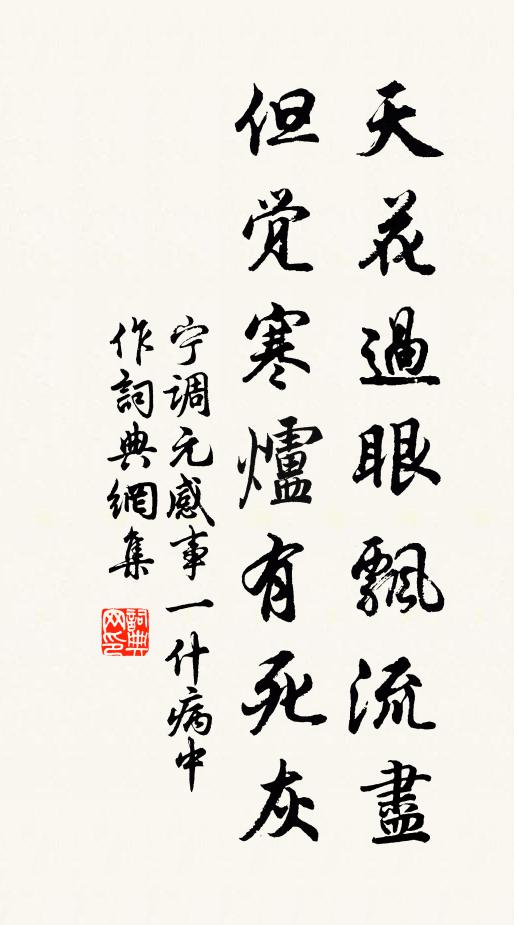 天花過眼飄流盡
但觉寒爐有死灰
宁调元感事一什病中
作詞典網集
詞典网印